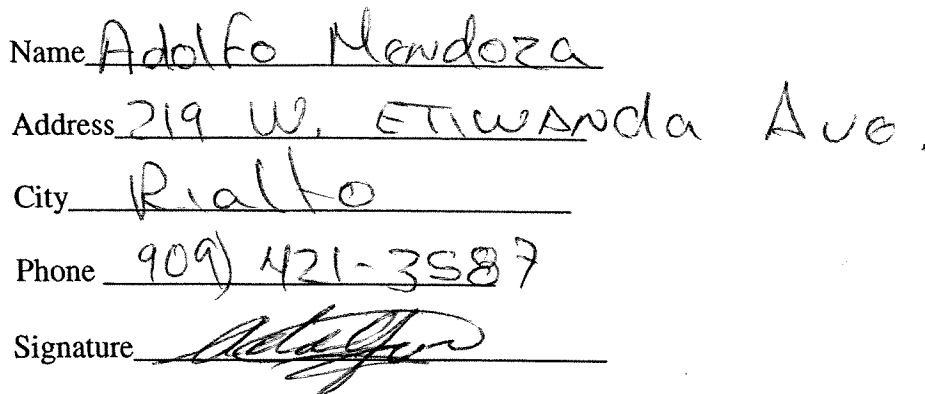 Name Adolfo Mendoza
Address 219 W. ETIWANda Ave.
City Rialto
Phone 909) 421-3587
Signature Adolfo